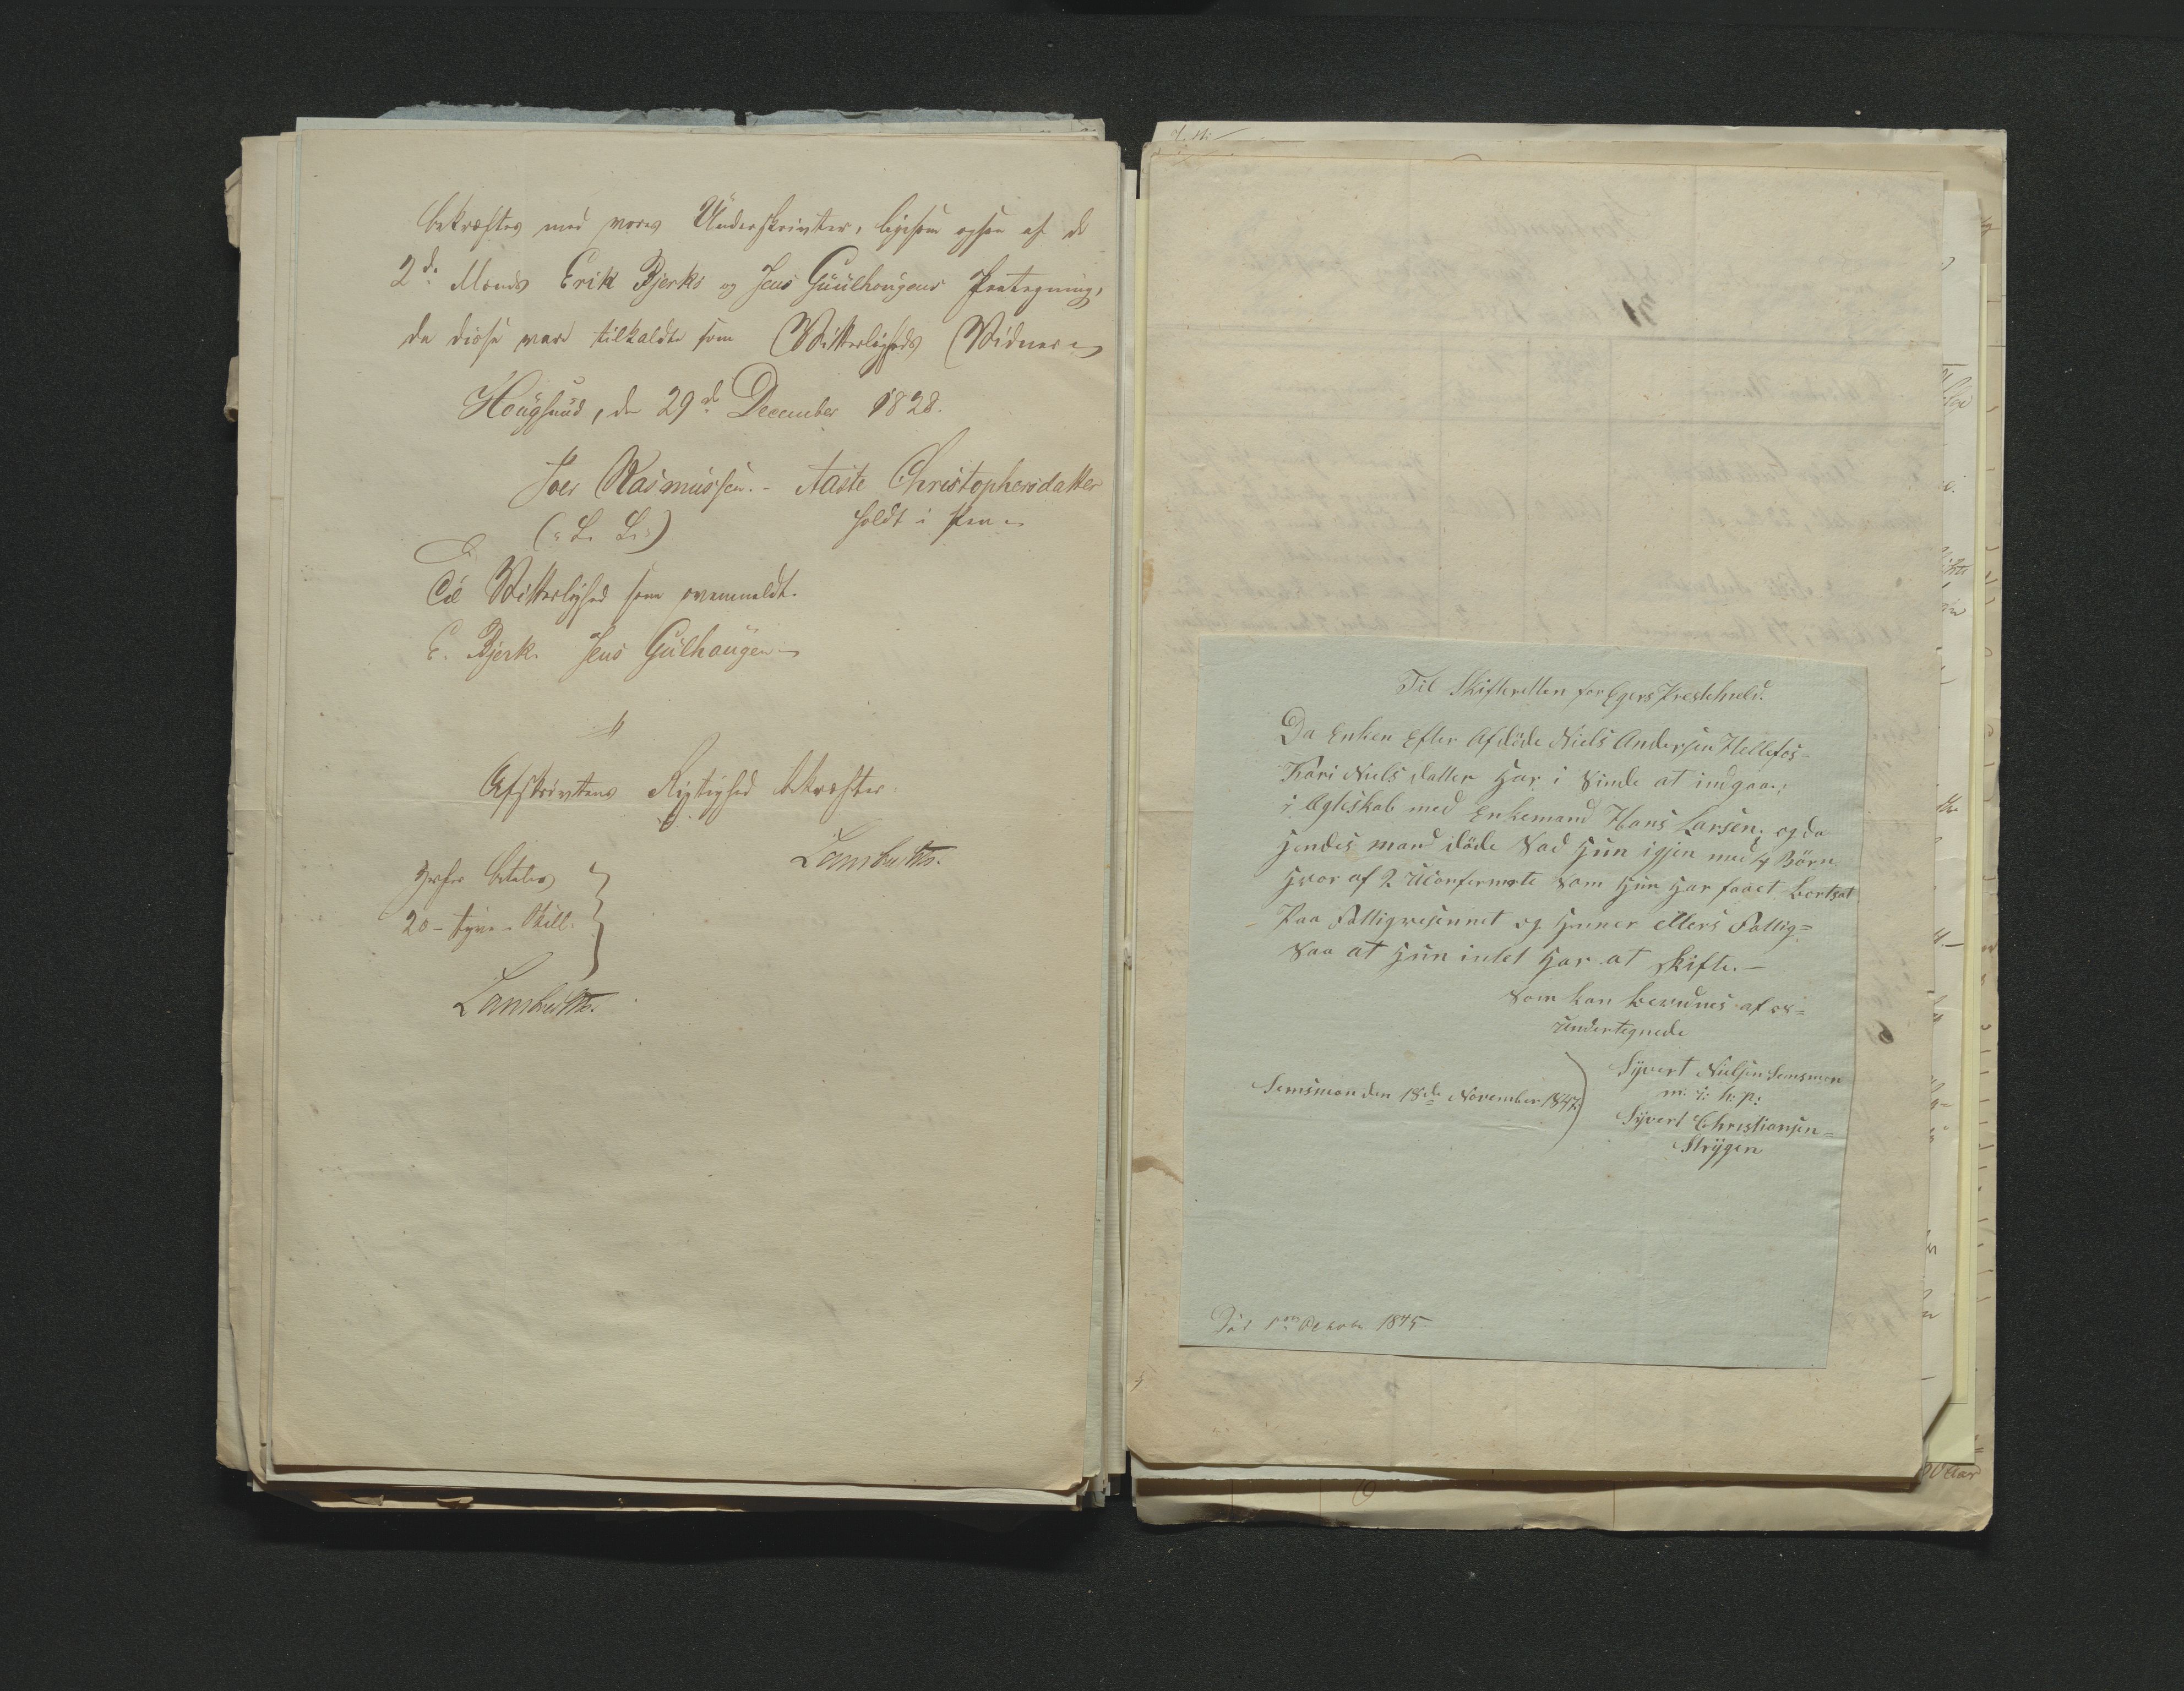 bekræftes med vores Underskrivter, ligesom ogsaa af de
2de Mænds Erik Bjerks og Jens Guulhougens Paategning,
da disse vare tilkaldte som Witterligheds Widner
Hougsund, den 29de December 1828.
Joer Rasmussen. - Aaste Christophersdatter
(: L. S. :) holdt i Pen
Til Witterlighed som ovenmeldt.
E. Bjerk. Jens Gulhaugen
Afskrivtens Rigtighed bekræfter
Lambrechts.
Herfor betales
20 - tyve - Skill.
Lambrechts.
Til Skifteretten for Egers Prestehield.
Da Enken Efter Afdöde Niels Andersen Hellefos=
Kari Niels datter har i Sinde at indgaae
i Egteskab med Enkemand Hans Larsen, og da
hendes mand döde Sad hun igjen med 4 Börn
hvor af 2 Uconfermerte Som hun har faaet bortsat
Paa Fattigvesennet og hun er ellers Fattig=
Saa at hun intet har at Skifte. —
Som kan bevidnes af os=
undertegnede
Semsmoen den 18de November 1847
Syvert Nielsen Semsmoen
m. i: h. p:
Syvert Christiansen=
Strygen
Död 1875